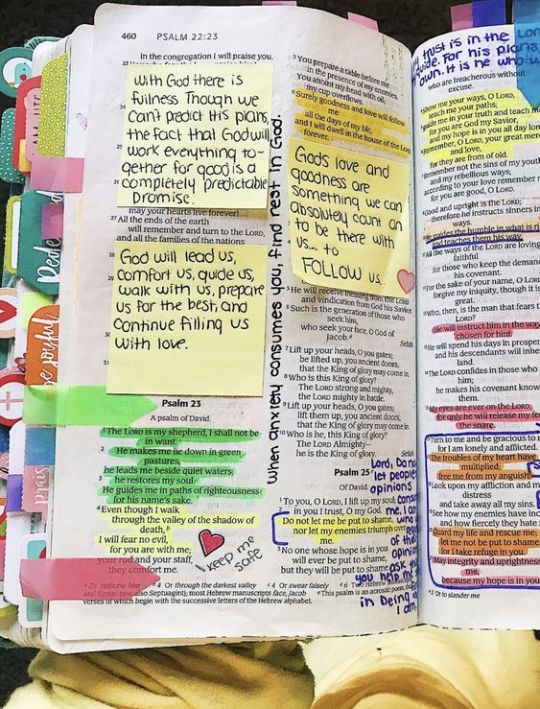 460 PSALM 22:23
in the congregation I will praise you.
With God there is
fullness Though we
Can't predict His plans,
the fact that God will
work everything to-
gether for good is a
completely predictable
Promise.
may your hearts live forever!
27 All the ends of the earth
will remember and turn to the LORD,
and all the families of the nations
God will lead us,
comfort us, guide us,
walk with us, prepare
us for the best, and
continue filling us
with love.
Psalm 23
A psalm of David.
1 The LORD is my shepherd, I shall not be
in want.
2 He makes me lie down in green
pastures,
he leads me beside quiet waters;
3 he restores my soul.
He guides me in paths of righteousness
for his name's sake.
4 Even though I walk
through the valley of the shadow of
death,
I will fear no evil,
for you are with me;
your rod and your staff,
they comfort me.
I keep me
safe
When anxiety consumes you, find rest in God.
5 You prepare a table before me
in the presence of my enemies.
You anoint my head with oil;
my cup overflows.
6 Surely goodness and love will follow
me
all the days of my life,
and I will dwell in the house of the LORD
forever.
Gods love and
goodness are
something we can
absolutely count on
to be there with
us... to
FOLLOW us.
5 He will receive blessing from the LORD
and vindication from God his Savior.
6 Such is the generation of those who
seek him,
who seek your face, O God of
Jacob.
Selah
7 Lift up your heads, O you gates;
be lifted up, you ancient doors,
that the King of glory may come in.
8 Who is this King of glory?
The LORD strong and mighty,
the LORD mighty in battle.
9 Lift up your heads, O you gates;
lift them up, you ancient doors,
that the King of glory may come in.
10 Who is he, this King of glory?
The LORD Almighty—
he is the King of glory.
Selah
Psalm 25
Of David.
1 To you, O LORD, I lift up my soul;
2 in you I trust, O my God.
Do not let me be put to shame,
nor let my enemies triumph over
me.
3 No one whose hope is in you
will ever be put to shame,
but they will be put to shame
Lord, Do
not let
people's
opinions
4 Or through the darkest valley
4 Or swear falsely
most Hebrew manuscripts face, Jacob
This psalm is an acrostic poem,
verses of which begin with the successive letters of the Hebrew alphabet.
trust is in the Lord
For his plans
own. It is he who
who are treacherous without
excuse.
4 Show me your ways, O LORD,
teach me your paths;
guide me in your truth and teach me,
for you are God my Savior,
and my hope is in you all day long
Remember, O LORD, your great mercy
and love,
for they are from of old.
Remember not the sins of my youth
and my rebellious ways;
according to your love remember
for you are good, O LORD.
Good and upright is the LORD;
therefore he instructs sinners in
ways.
He guides the humble in what is
and teaches them his way.
All the ways of the LORD are loving
faithful
for those who keep the demands
his covenant.
For the sake of your name, O LORD
forgive my iniquity, though it is
great.
Who, then, is the man that fears
LORD?
He will instruct him in the way
chosen for him.
He will spend his days in prosperity
and his descendants will inherit
land.
The LORD confides in those who
him;
he makes his covenant known
them.
My eyes are ever on the LORD,
for only he will release my feet
the snare.
Turn to me and be gracious to me
for I am lonely and afflicted.
The troubles of my heart have
multiplied;
free me from my anguish.
Look upon my affliction and my
distress
and take away all my sins.
See how my enemies have increased
and how fiercely they hate
Guard my life and rescue me;
let me not be put to shame,
for I take refuge in you.
May integrity and uprightness
me,
because my hope is in you
2 Or to slander me